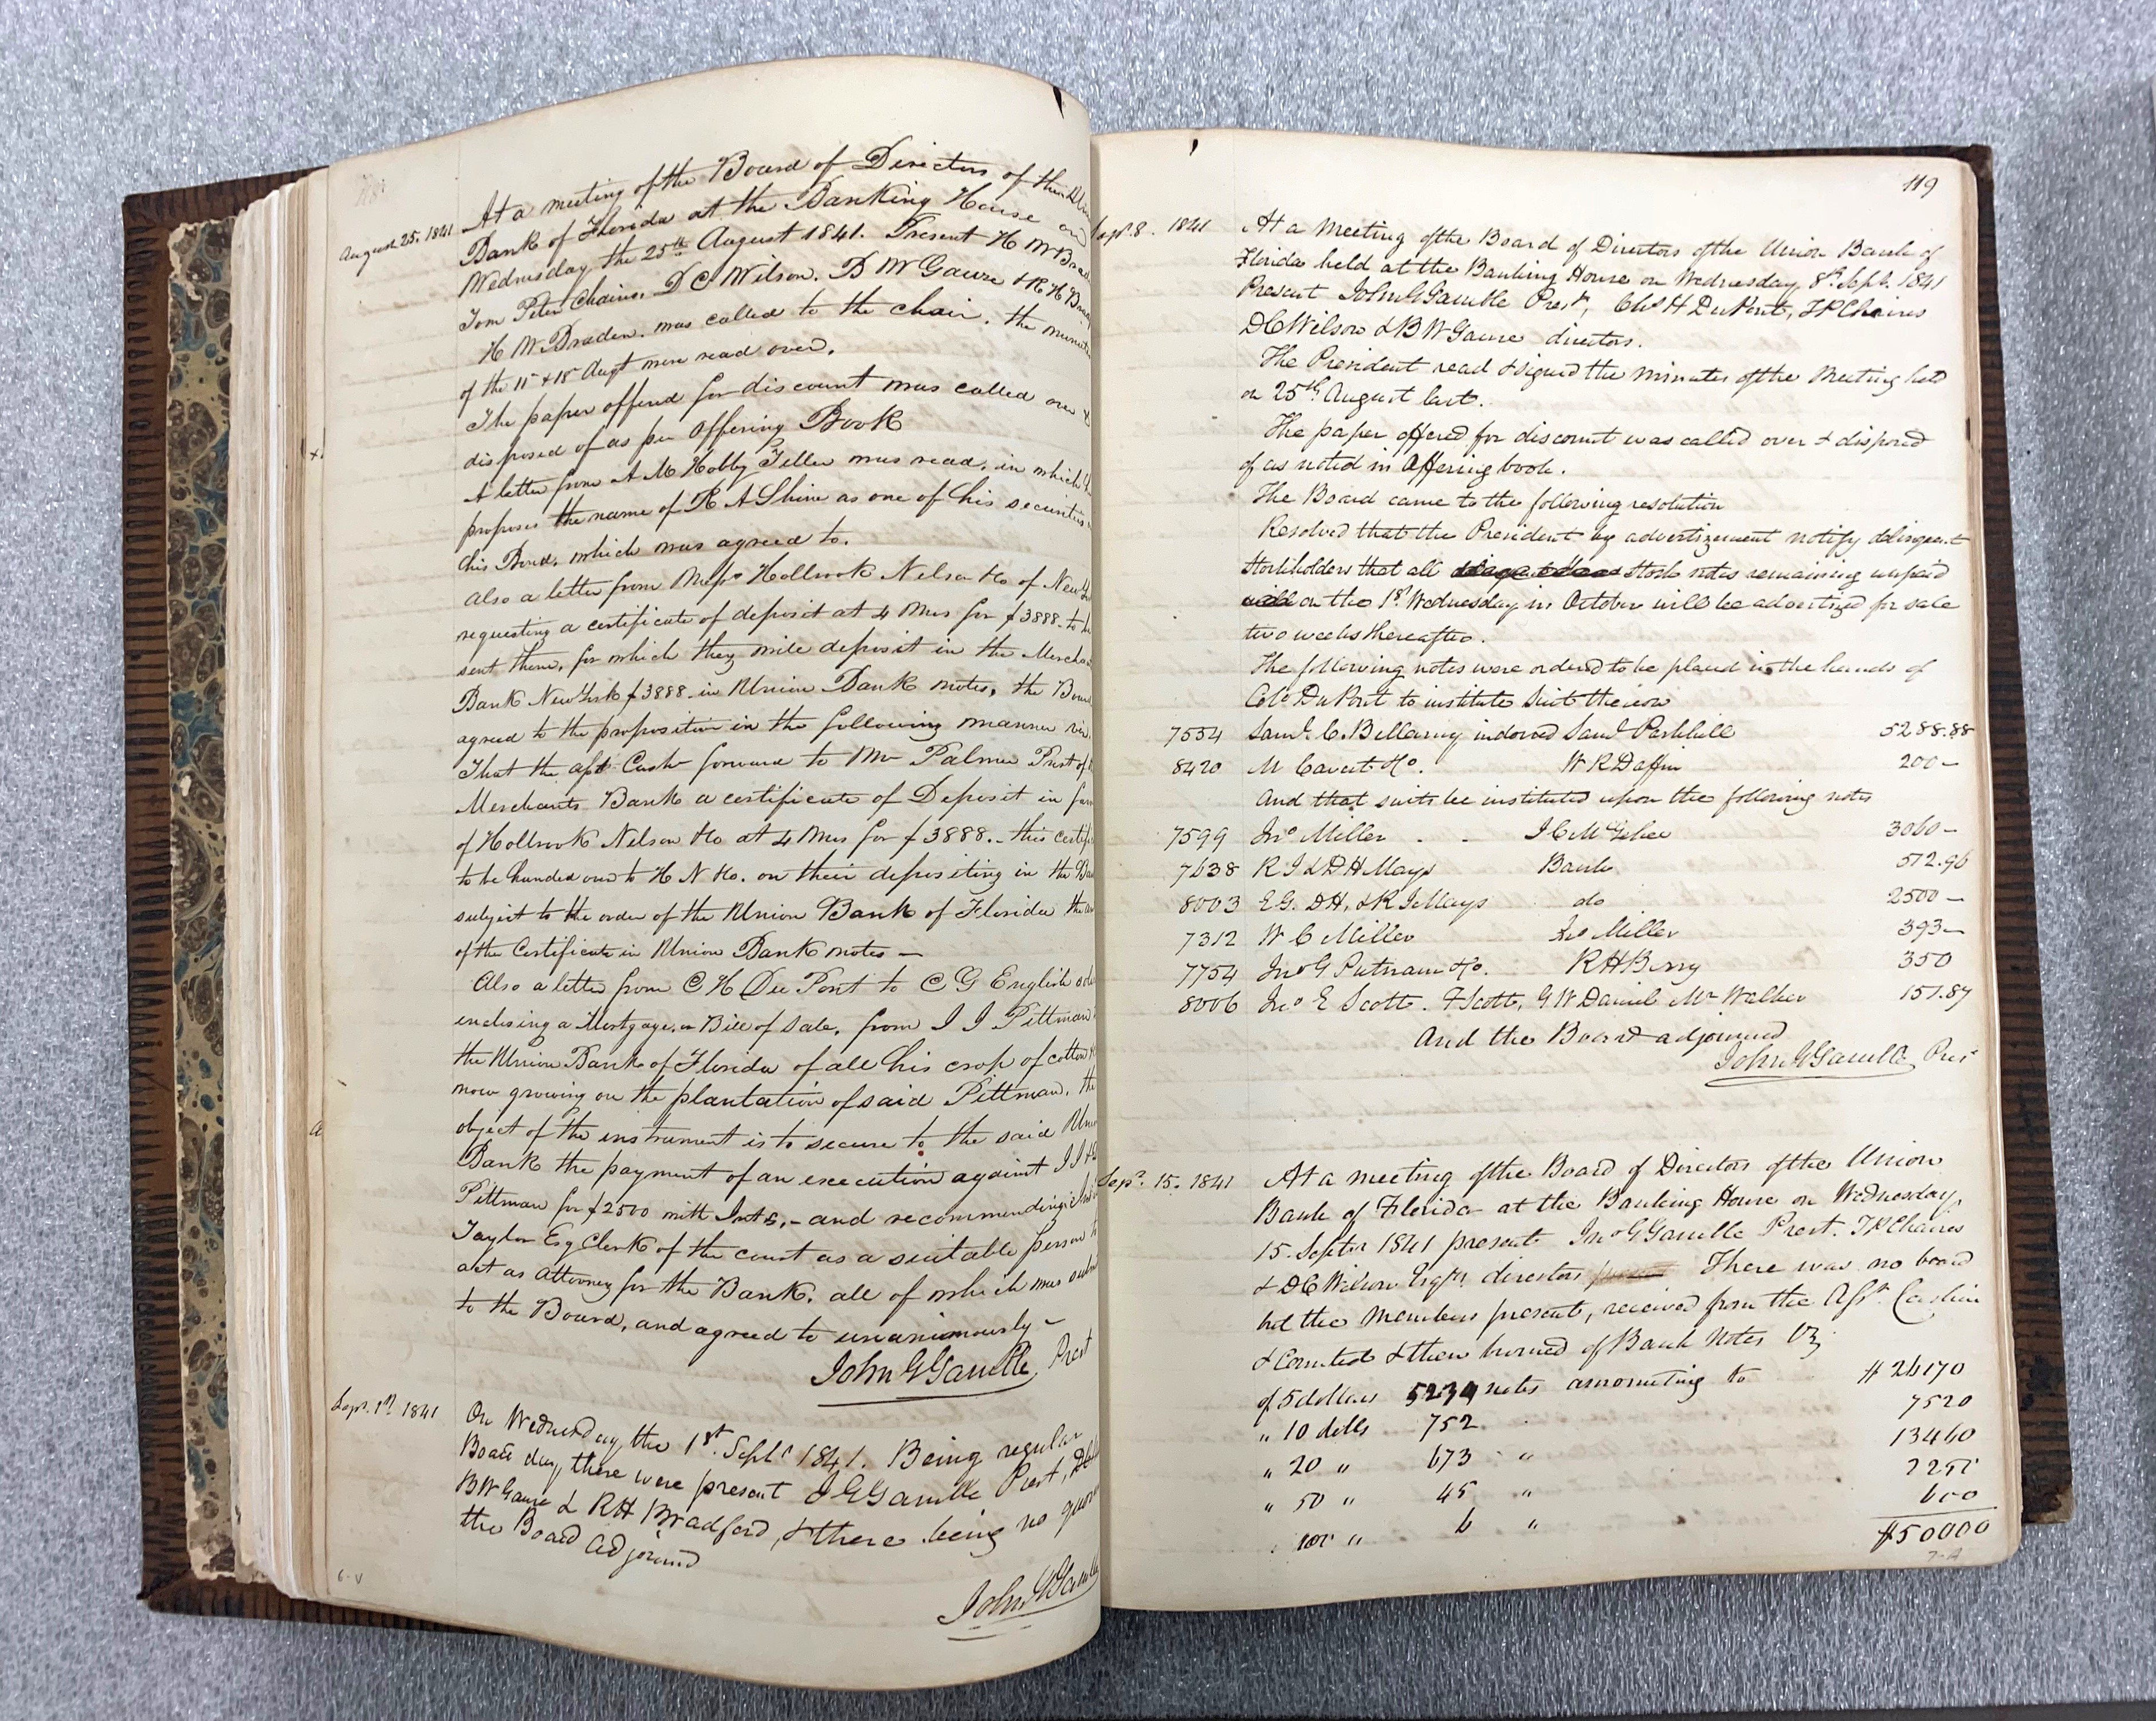 118
August 25. 1841
At a meeting of the Board of Directors of the
Bank of Florida at the Banking House on
Wednesday the 25th August 1841. Present H W
Tom Peter Chaires, D C Wilson, B W Gause & R H
H W Braden. was called to the chair. the
of the 11 & 18 Augt were read over.
The paper offered for discount was called over &
disposed of as per Offering Book
A letter from A M Hobby Teller was read, in which
proposes the name of R A Shine as one of his securities
his Bond, which was agreed to.
Also a letter from Messrs Hollrook Nelson &Co of New
requesting a certificate of deposit at 4 Mos for $3888- to
sent them, for which they will deposit in the
Bank New York $3888- in Union Bank notes, the
agreed to the proposition in the following manner viz.
That the asst Cashr forward to Mr Palmer Prest of
Merchants Bank a certificate of Deposit in
of Hollrook Nelson &Co at 4 Mos for $3888.- this
to be handed over to H N &Co. on their depositing in the
subject to the order of the Union Bank of Florida the
of the Certificate in Union Bank notes —
Also a letter from C H Du Pont to C G English
enclosing a Mortgage, or Bill of Sale, from J J Pittman
the Union Bank of Florida of all his crop of cotton
now growing on the plantation of said Pittman, the
object of the instrument is to secure to the said
Bank the payment of an execution against J J
Pittman for $2500 with Ints,- and recommending
Taylor Esq Clerk of the court as a suitable person
act as Attorney for the Bank, all of which was
to the Board, and agreed to unanimously -
John G Gamble Prest
Sept. 1st 1841
On Wednesday the 1st Septr 1841. Being regular
Board day, there were present J G Gamble Prest,
B W Gause & R H Bradford, & there being no
the Board adjourned
John G Gamble
6-V
119
Sept. 8. 1841
At a Meeting of the Board of Directors of the Union Bank of
Florida held at the Banking House on Wednesday 8th Sept. 1841
Present John G Gamble Prest, Chs H DuPont, T P Chaires
D C Wilson & B W Gause directors.
The President read & signed the minutes of the Meeting held
on 25th August last.
The paper offered for discount was called over & disposed
of as noted in Offering book.
The Board came to the following resolution
Resolved that the President by advertizement notify delinquent
Stockholders that all Stock notes remaining unpaid
on the 1st Wednesday in October will be advertized for sale
two weeks thereafter.
The following notes were ordered to be placed in the hands of
Colo DuPont to institute Suit thereon
7554 Saml. C. Bellamy indorsed Saml Parkhill 5288.88
8420 M Cavert &Co. W R Daffin 200—
And that suits be instituted upon the following notes
7599 Jno Miller - - J C McGehee 3060—
7638 R J & D H Mays Bank 512.96
8003 E G. D H, & R J Mays do 2500—
7312 W C Miller Jno Miller 393—
7754 Jno G Putnam &Co. R H Berry 350
8006 Jno E Scott. F Scott, G W Daniel Mr Walker 151.87
And the Board adjourned
John G Gamble Pres
Sept. 15. 1841
At a meeting of the Board of Directors of the Union
Bank of Florida at the Banking House on Wednesday,
15. Septer 1841 present Jno G Gamble Prest. T P Chaires
& D C Wilson Esqrs directors present There was no board
but the Members present, received from the Asst. Cashier
& Counted & then burned of Bank Notes Viz
of 5 dollars 5234 notes amounting to $26170
" 10 dolls 752 " 7520
" 20 " 673 " 13460
" 50 " 45 " 2250
" 100 " 6 " 600
$50000
7-A